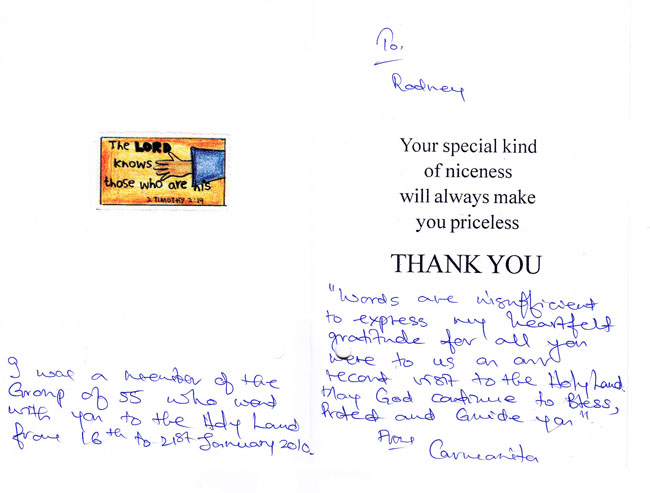 The LORD
knows
those who are his
2 TIMOTHY 2:19
I was a member of the
Group of 55 who went
with you to the Holy Land
from 16th to 21st January 2010.
To,
Rodney
Your special kind
of niceness
will always make
you priceless
THANK YOU
"Words are insufficient
to express my heartfelt
gratitude for all you
were to us on our
recent visit to the Holy Land.
May God continue to Bless,
Protect and Guide you"
From